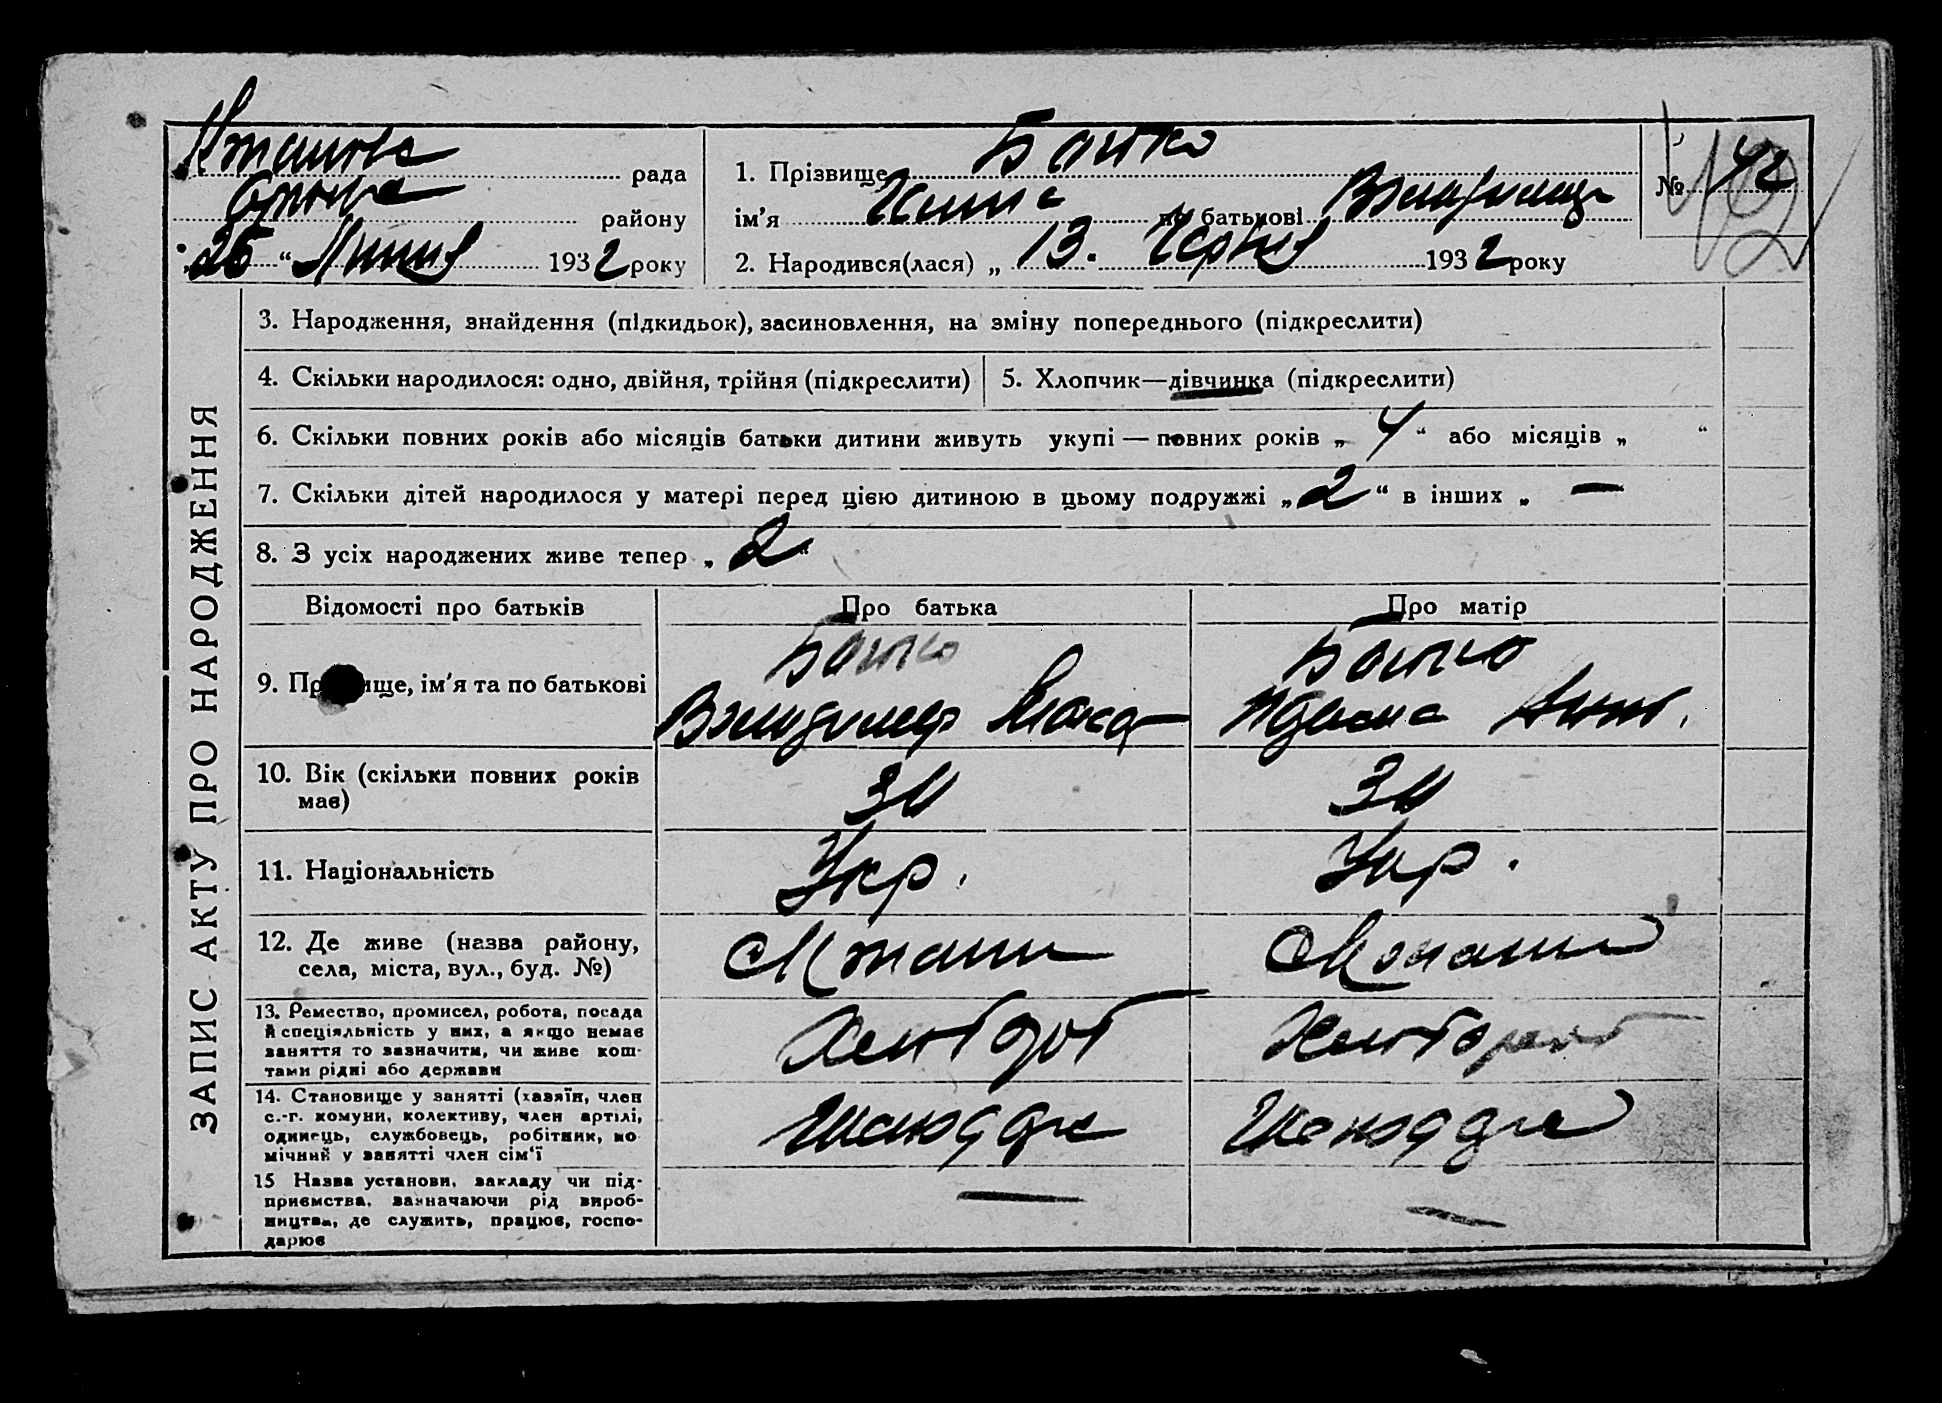 рада
району
25 " Липня 1932 року
1. Прізвище Бойко
ім'я по батькові
2. Народився(лася) „ 13. Червня 1932 року
№ 42
ЗАПИС АКТУ ПРО НАРОДЖЕННЯ
3. Народження, знайдення (підкидьок), засиновлення, на зміну попереднього (підкреслити)
4. Скільки народилося: одно, двійня, трійня (підкреслити)
5. Хлопчик—дівчинка (підкреслити)
6. Скільки повних років або місяців батьки дитини живуть укупі — повних років „ 4 “ або місяців „ “
7. Скільки дітей народилося у матері перед цією дитиною в цьому подружжі „ 2 “ в інших „ —
8. З усіх народжених живе тепер „ 2 “
Відомості про батьків
Про батька
Про матір
9. Прізвище, ім'я та по батькові
Бойко
Володимир
Бойко
10. Вік (скільки повних років
має)
30
30
11. Національність
Укр.
Укр.
12. Де живе (назва району,
села, міста, вул., буд. №)
13. Ремество, промисел, робота, посада
й спеціяльність у них, а якщо немає
заняття то зазначити, чи живе кош-
тами рідні або держави
Хлібороб
Хлібороб
14. Становище у занятті (хазяїн, член
с.-г. комуни, колективу, член артілі,
одинець, службовець, робітник, по-
мічний у занятті член сім'ї
15 Назва установи, закладу чи під-
приємства, зазначаючи рід вироб-
ництва, де служить, працює, госпо-
дарює
—
—